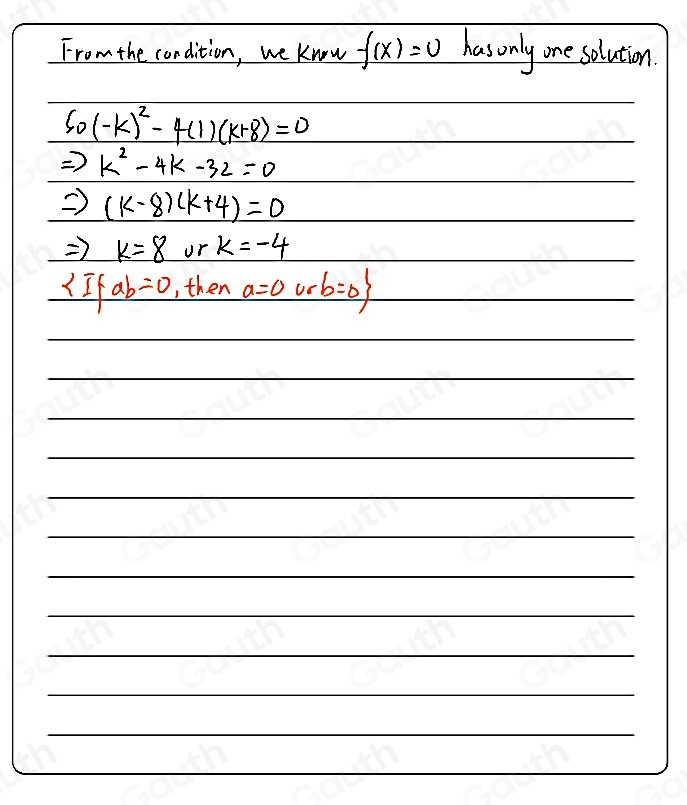 From the condition, we know f(x)=0 has only one solution.
So (-k)²-4(1)(k+8)=0
=> k²-4k-32=0
=> (k-8)(k+4)=0
=> k=8 or k=-4
{If ab=0, then a=0 or b=0}
Gauth